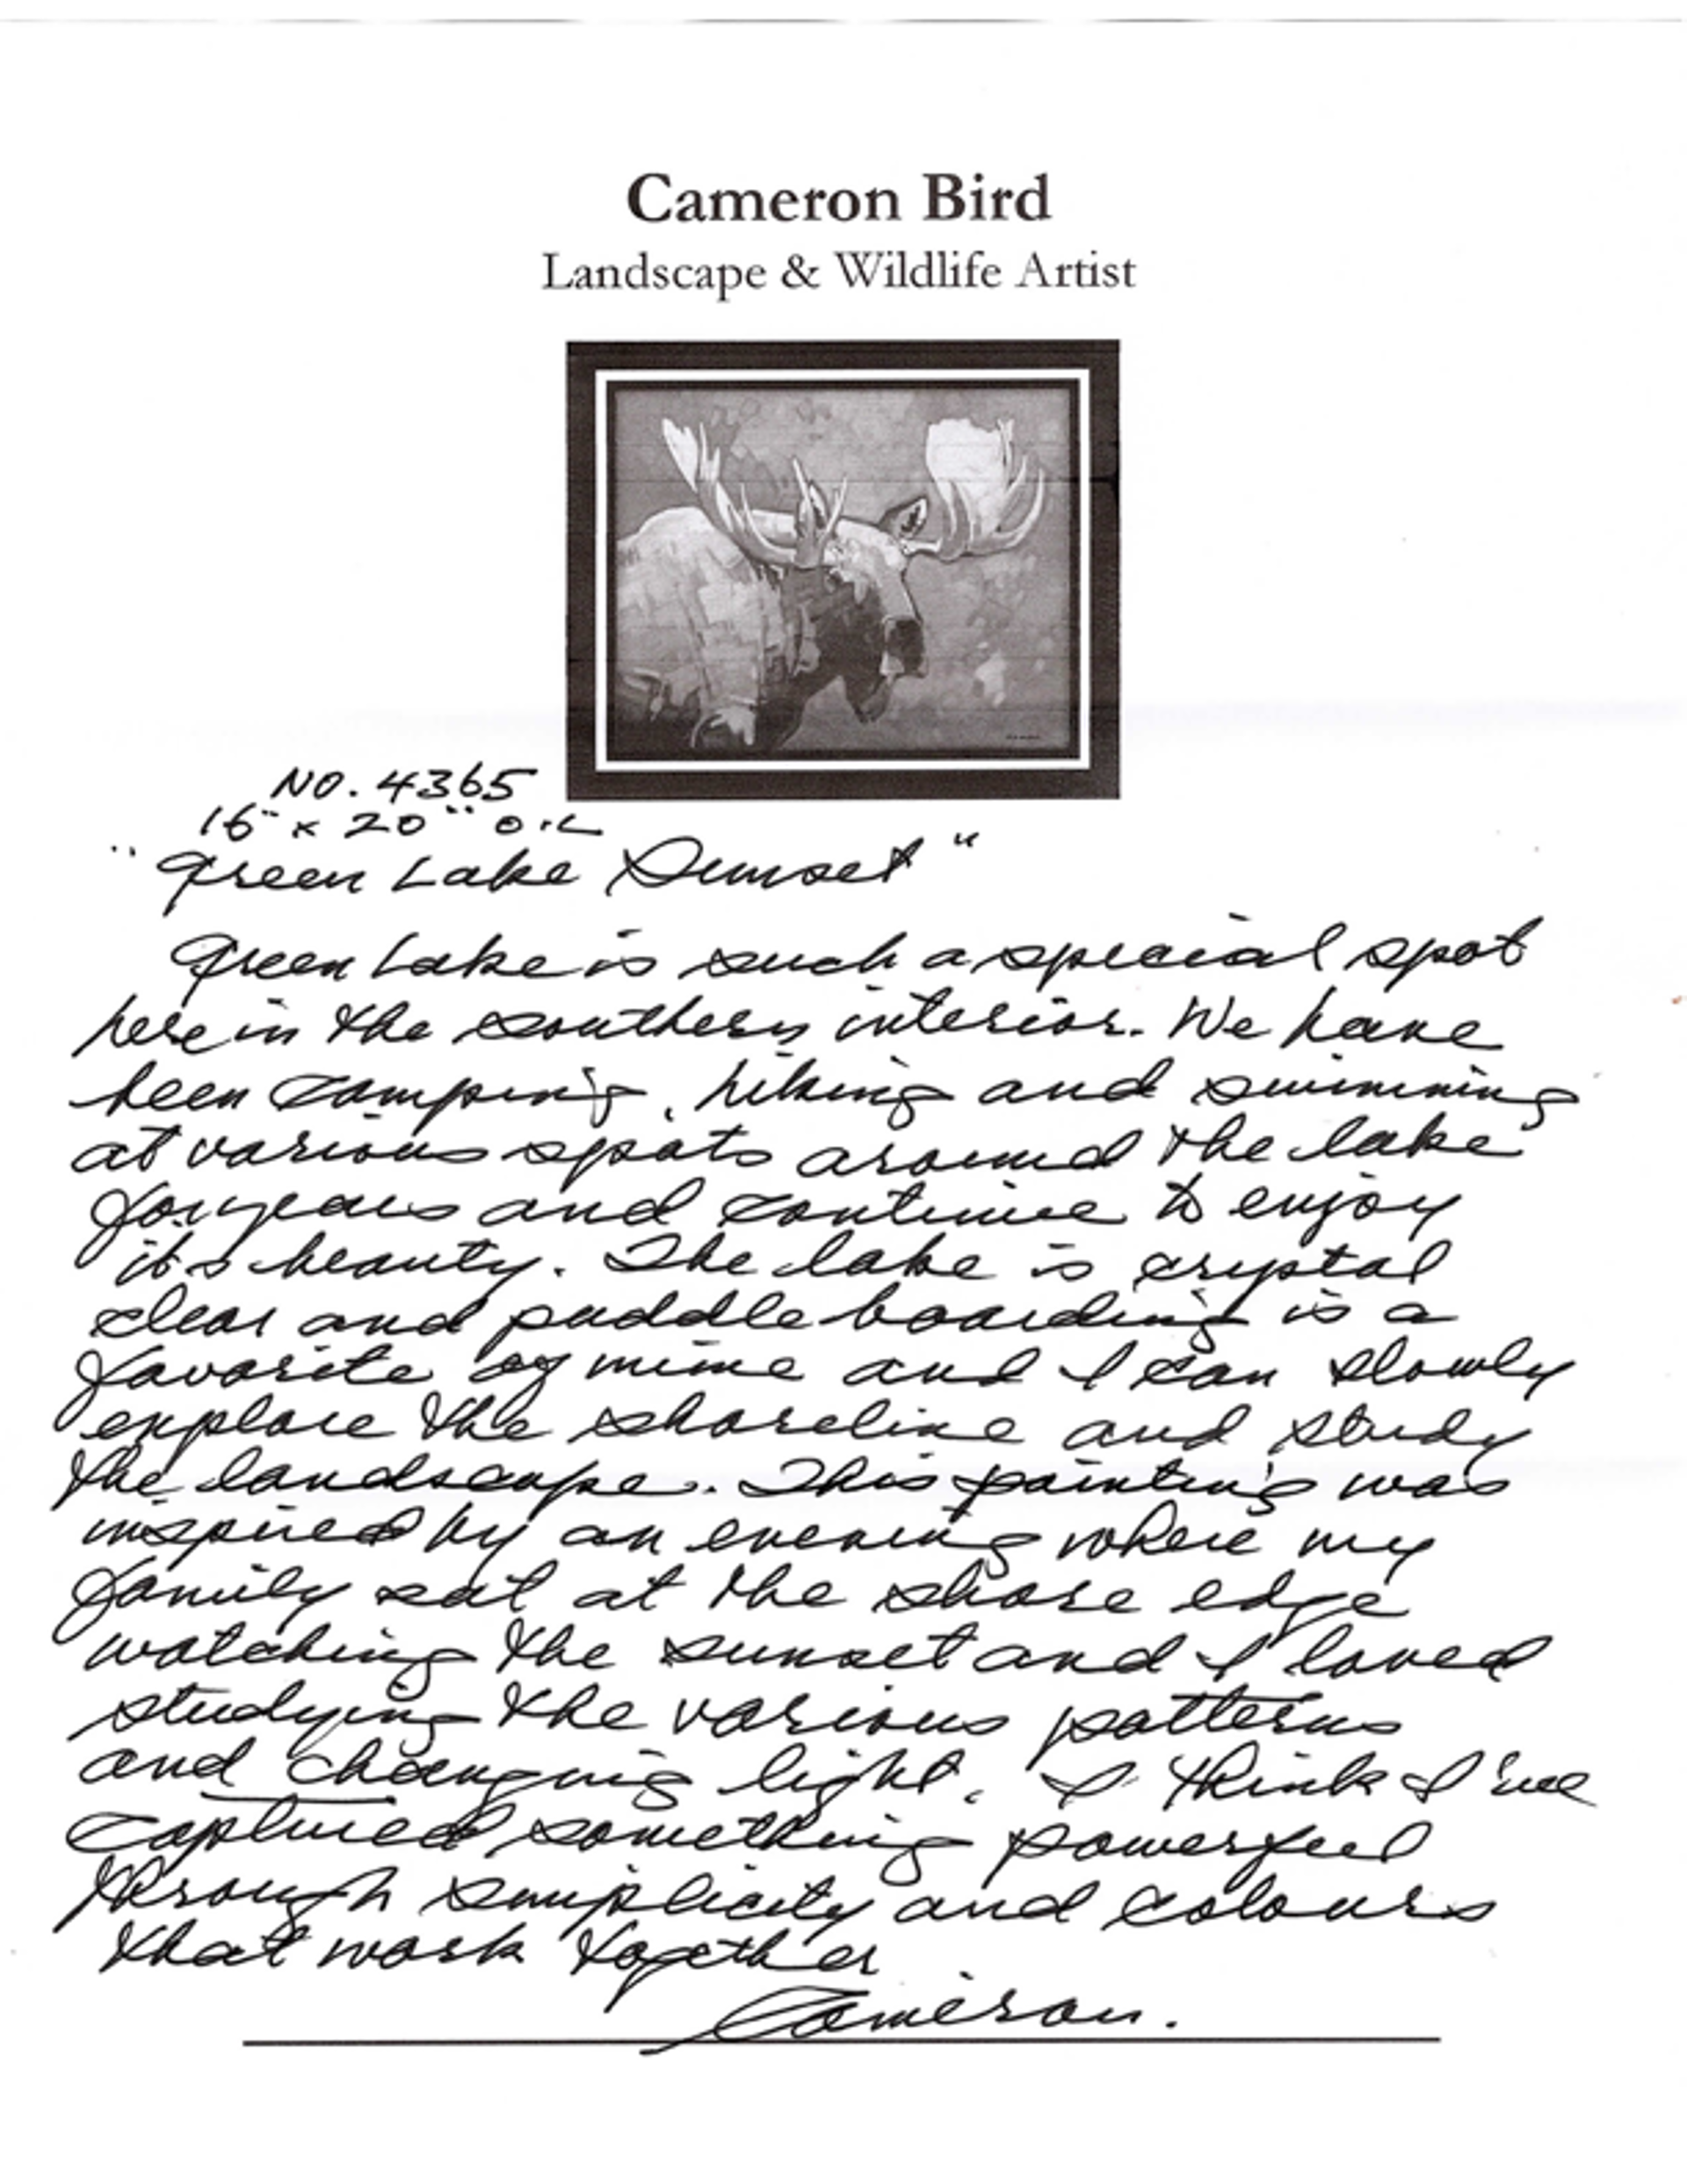 Cameron Bird
Landscape & Wildlife Artist
NO. 4365
16" x 20" OIL
"Green Lake Sunset"
Green Lake is such a special spot
here in the southern interior. We have
been camping, hiking and swimming
at various spots around the lake
for years and continue to enjoy
its beauty. The lake is crystal
clear and paddle boarding is a
favorite of mine and I can slowly
explore the shoreline and study
the landscape. This painting was
inspired by an evening where my
family sat at the shore edge
watching the sunset and I loved
studying the various patterns
and changing light. I think I've
captured something powerful
through simplicity and colours
that work together
Cameron.